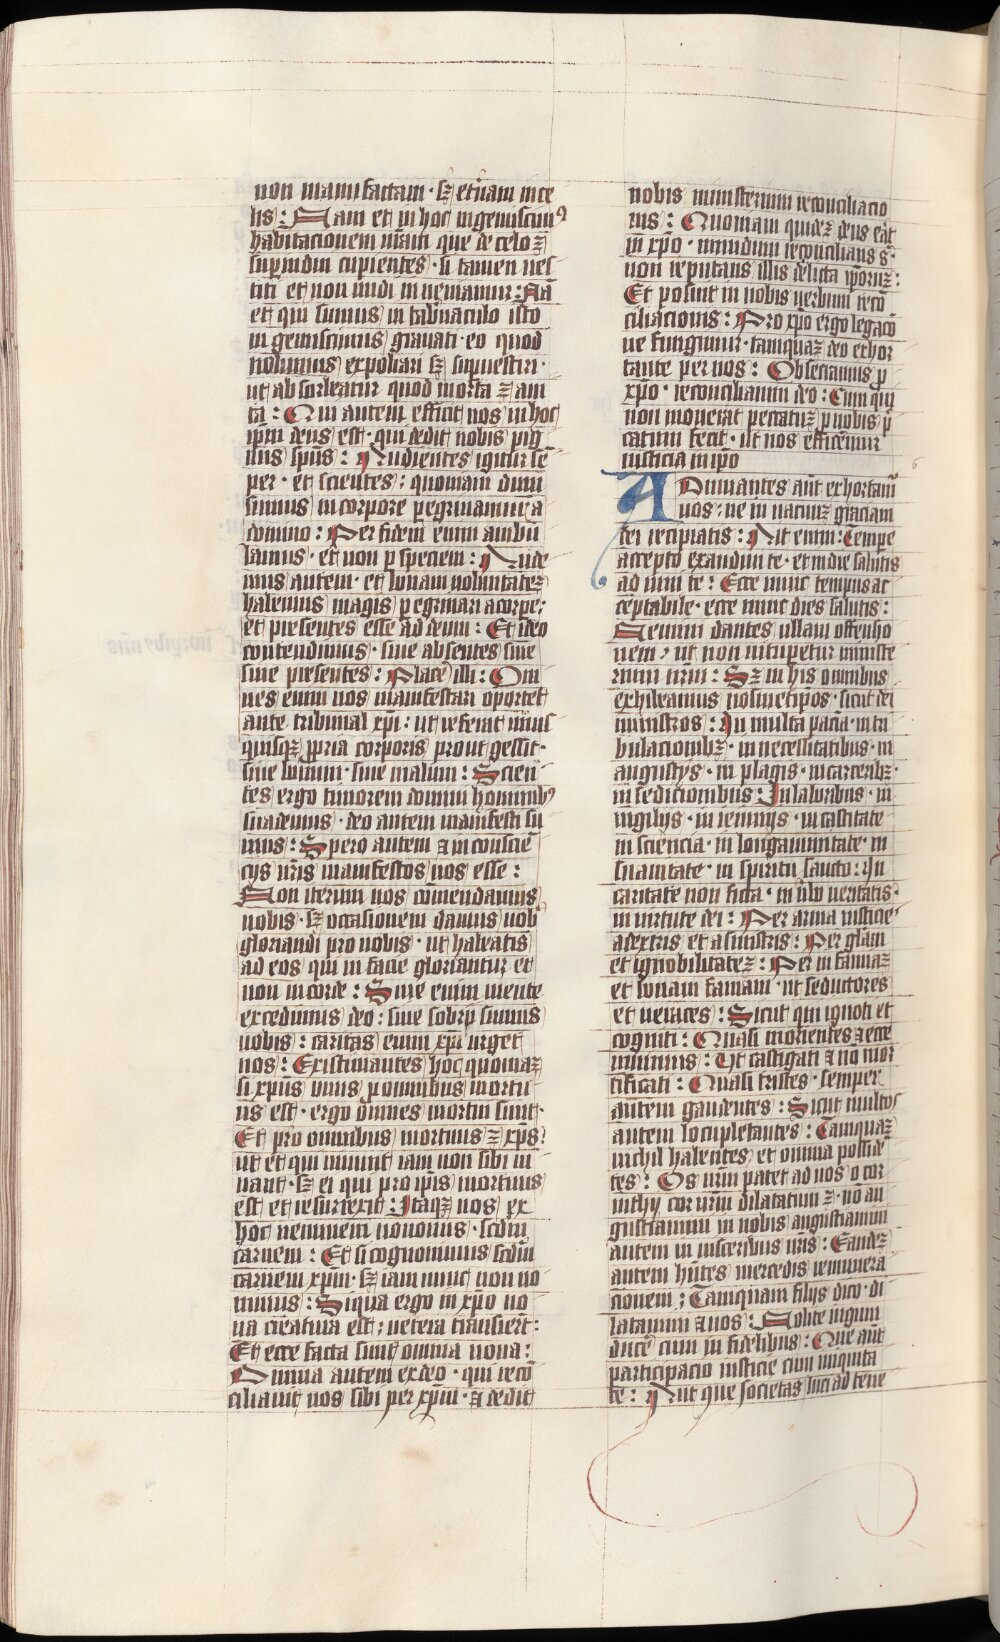 non manufactam · sꝫ et̾nam in ce
lis : Nam et in hoc ingemiscimꝰ
habitacionem nr̄am que de celo ꝫ
sup̱indui cupientes · si tamen ves
titi et non nudi inueniamur : Nā
et qui sumus in tab̾naculo isto
ingemiscimus grauati · eo quod
nolumus expoliari sꝫ sup̱uestiri ·
ut absorbeatur quod morta ꝫ a ui
ta : Qui autem efficit nos in hoc
ip̄m deus est · qui dedit nobis pig
nus sp̄us : Audientes igitur sē
per · et scientes ; quoniam dum
sumus in corpore p̱egrinamur a
domino : Per fidem enim ambu
lamus · et non p̱ speciem : Aude
mus autem · et bonam voluntatēꝫ
habemus magis p̱egrinari a corpe ;
et presentes esse ad deum : Et ideo
contendimus · siue absentes siue
siue presentes : Placē illi : Om
nes enim nos manifestari oportet
ante tribunal xp̄i : ut referat vnus
quisqꝫ p̱pria corporis prout gessit ·
siue bonum · siue malum : Scien
tes ergo timorem domini hominibꝰ
suademus · deo autem manifesti su
mus : Spero autem ⁊ in conscīe
cijs vr̄is manifestos nos esse :
Non iterum nos cōmendamus
vobis · sꝫ occasionem damus vob̾
gloriandi pro nobis · ut habeatis
ad eos qui in facie gloriantur et
non in corde : Siue enim mente
excedimus deo : siue sobrij sumus
vobis : caritas enim xp̄i urget
nos : Existimantes hoc quoniaꝫ
si xp̄us vnus p̱ omnibus mortu
us est · ergo omnes mortui sunt ·
Et pro omnibus mortuus ꝫ xp̄s :
ut et qui viuunt iam non sibi vi
uant · sꝫ ei qui pro ip̄is mortuus
est et resurrexit : Itaqꝫ nos ex
hoc neminem nouimus · scdm̄
carnem : Et si cognouimus scdm̄
carnem xp̄m · sꝫ iam nunc non no
uimus : Siqua ergo in xp̄o no
ua creatura est ; vetera transiert̄ :
Et ecce facta sunt omnia noua :
Omnia autem ex deo · qui recō
ciliauit nos sibi per xp̄m · ⁊ dedit
nobis ministerium reconciliacio
nis : Quoniam quideꝫ deus erāt
in xp̄o · mundum reconcilians s̄ ·
non reputans illis delicta ip̄oruꝫ :
Et posuit in nobis verbum recō
ciliacionis : Pro xp̄o ergo legacō
ne fungimur · tamquaꝫ deo exhor
tante per nos : Obsecramus p̱
xp̄o · reconciliamini deo : Eum qui
non nouerat peccatuꝫ p̱ nobis p̄
catum fecit · ut nos efficēmur
iusticia in ip̄o
ADiuuantes aūt exhortam̄
vos · ne in vacuuꝫ graciam
dei recipiatis : Ait enim : Tempe
accepto exaudiui te · et in die salutis
adiuui te : Ecce nunc tempus ac
ceptabile · ecce nunc dies salutis :
Nemini dantes ullam offensio
nem , ut non vitupetur ministe
rium nr̄m : Sꝫ in his omnibus
exhibeamus nosmetip̄os · sicut dei
ministros : In multa paciā · in tri
bulacionibꝫ · in necessitatibus · in
angustijs · in plagis · in carceribꝫ ·
in sedicionibus : In laboribus · in
vigilijs · in ieiunijs · in castitate
in sciencia · in longanimitate · in
suauitate · in spiritu sancto : In
caritate non ficta · in ūbo veritatis ·
in virtute dei : Per arma iusticie
a dextris et a sinistris : Per glām
et ignobilitateꝫ : Per infamiaꝫ
et bonam famam · ut seductores
et veraces : Sicut qui ignoti et
cogniti : Quasi morientes ⁊ ecce
viuimus : Ut castigati ⁊ nō mor
tificati : Quasi tristes · semper
autem gaudentes : Sicut multos
autem locupletantes : Tamquaꝫ
nichil habentes et omnia posside
tes : Os nr̄um patet ad vos o cor
inthij cor nr̄um dilatatum ꝫ · nō an
gustiamini in nobis angustiamini
autem in visceribus vr̄is : Eandeꝫ
autem hn̄tes mercedis remunera
cionem ; Tamquam filijs dico · di
latamini ⁊ vos : Nolite iugum
ducē cum infidelibus : Que aūt
participacio iusticie cum iniquita
te : Aut que societas luci ad tene